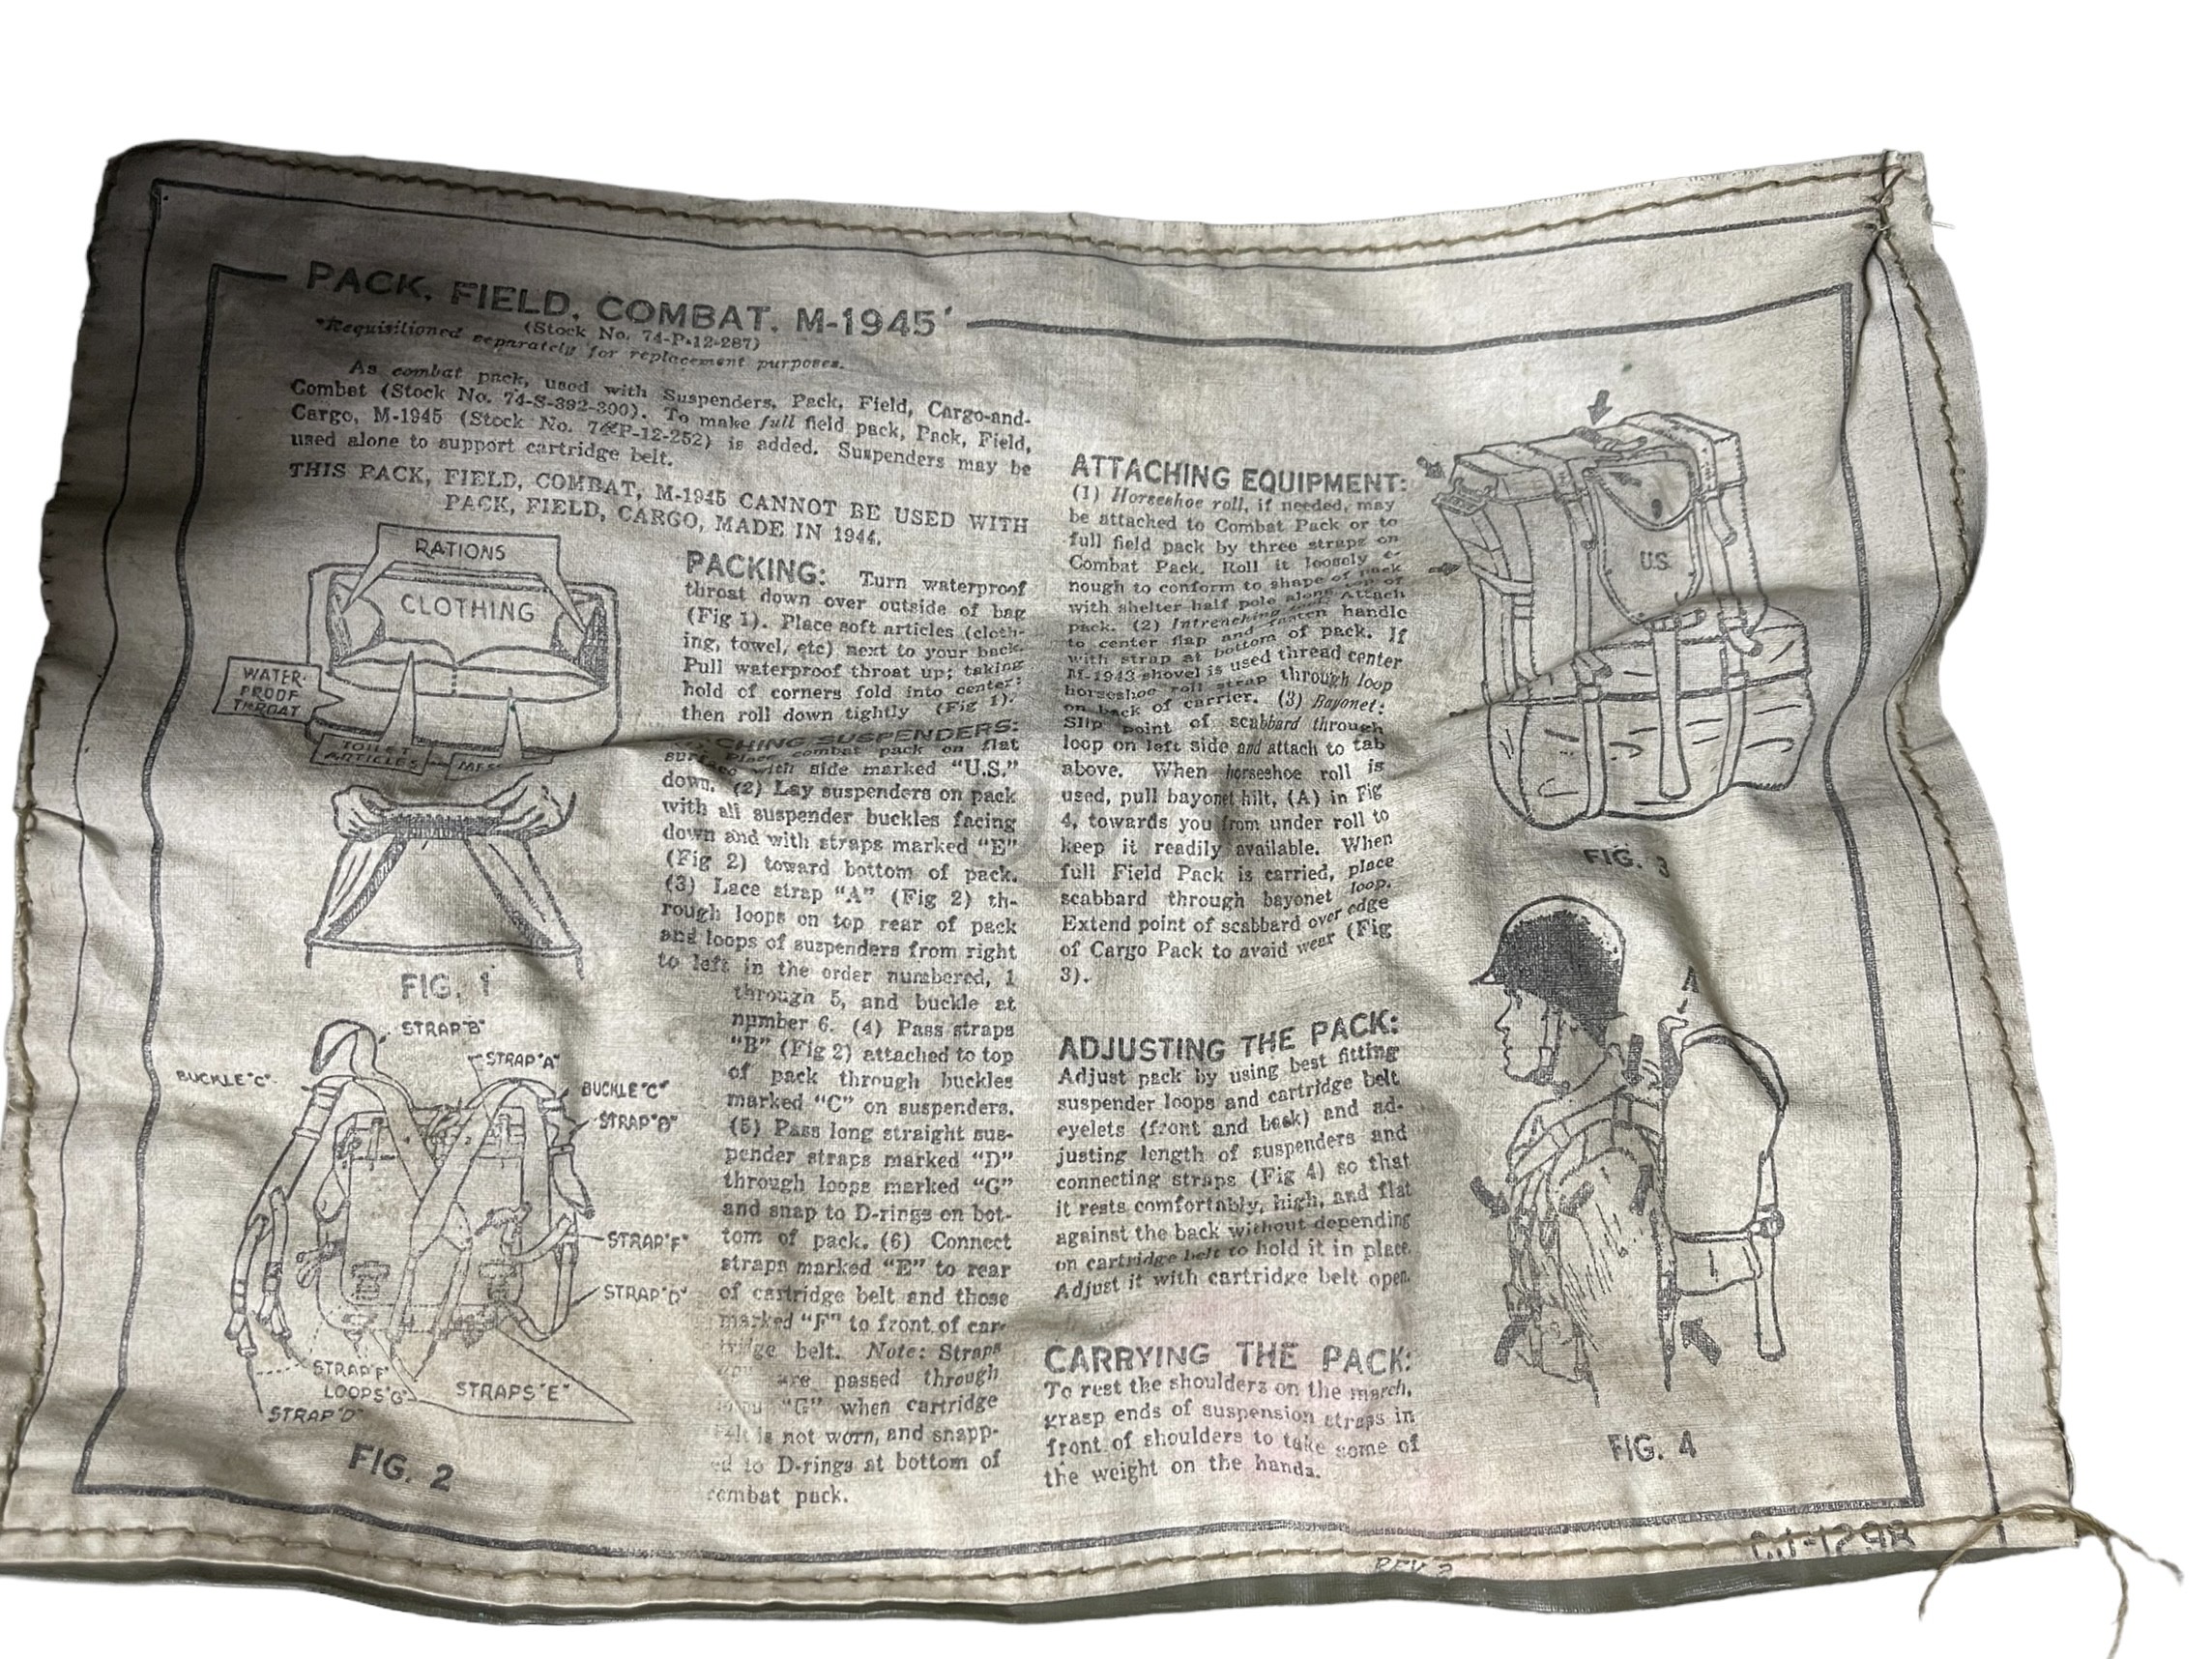 PACK, FIELD, COMBAT, M-1945*
(Stock No. 74-P-12-287)
*Requisitioned separately for replacement purposes.
As combat pack, used with Suspenders, Pack, Field, Cargo-and-
Combat (Stock No. 74-S-392-300). To make full field pack, Pack, Field,
Cargo, M-1945 (Stock No. 74-P-12-252) is added. Suspenders may be
used alone to support cartridge belt.
THIS PACK, FIELD, COMBAT, M-1945 CANNOT BE USED WITH
PACK, FIELD, CARGO, MADE IN 1944.
RATIONS
CLOTHING
WATER-
PROOF
THROAT
TOILET
ARTICLES
FIG. 1
STRAP "B"
STRAP "A"
BUCKLE "C"
BUCKLE "C"
STRAP "B"
STRAP "F"
STRAP "D"
STRAP "F"
LOOPS "G"
STRAPS "E"
STRAP "D"
FIG. 2
PACKING: Turn waterproof
throat down over outside of bag
(Fig 1). Place soft articles (cloth-
ing, towel, etc) next to your back.
Pull waterproof throat up; taking
hold of corners fold into center;
then roll down tightly (Fig 1).
CHING SUSPENDERS:
Place combat pack on flat
surface with side marked "U.S."
down. (2) Lay suspenders on pack
with all suspender buckles facing
down and with straps marked "E"
(Fig 2) toward bottom of pack.
(3) Lace strap "A" (Fig 2) th-
rough loops on top rear of pack
and loops of suspenders from right
to left in the order numbered, 1
through 5, and buckle at
number 6. (4) Pass straps
"B" (Fig 2) attached to top
of pack through buckles
marked "C" on suspenders.
(5) Pass long straight sus-
pender straps marked "D"
through loops marked "G"
and snap to D-rings on bot-
tom of pack. (6) Connect
straps marked "E" to rear
of cartridge belt and those
marked "F" to front of car-
tridge belt. Note: Straps
are passed through
"G" when cartridge
belt is not worn, and snapp-
ed to D-rings at bottom of
combat pack.
ATTACHING EQUIPMENT:
(1) Horseshoe roll, if needed, may
be attached to Combat Pack or to
full field pack by three straps on
Combat Pack. Roll it loosely e-
nough to conform to shape of pack
with shelter half pole along top of
pack. (2) Intrenching tool: Attach
to center flap and fasten handle
with strap at bottom of pack. If
M-1943 shovel is used thread center
horseshoe roll strap through loop
on back of carrier. (3) Bayonet:
Slip point of scabbard through
loop on left side and attach to tab
above. When horseshoe roll is
used, pull bayonet hilt, (A) in Fig
4, towards you from under roll to
keep it readily available. When
full Field Pack is carried, place
scabbard through bayonet loop.
Extend point of scabbard over edge
of Cargo Pack to avoid wear (Fig
3).
ADJUSTING THE PACK:
Adjust pack by using best fitting
suspender loops and cartridge belt
eyelets (front and back) and ad-
justing length of suspenders and
connecting straps (Fig 4) so that
it rests comfortably, high, and flat
against the back without depending
on cartridge belt to hold it in place.
Adjust it with cartridge belt open.
CARRYING THE PACK:
To rest the shoulders on the march,
grasp ends of suspension straps in
front of shoulders to take some of
the weight on the hands.
U.S.
FIG. 3
A
FIG. 4
REV 2